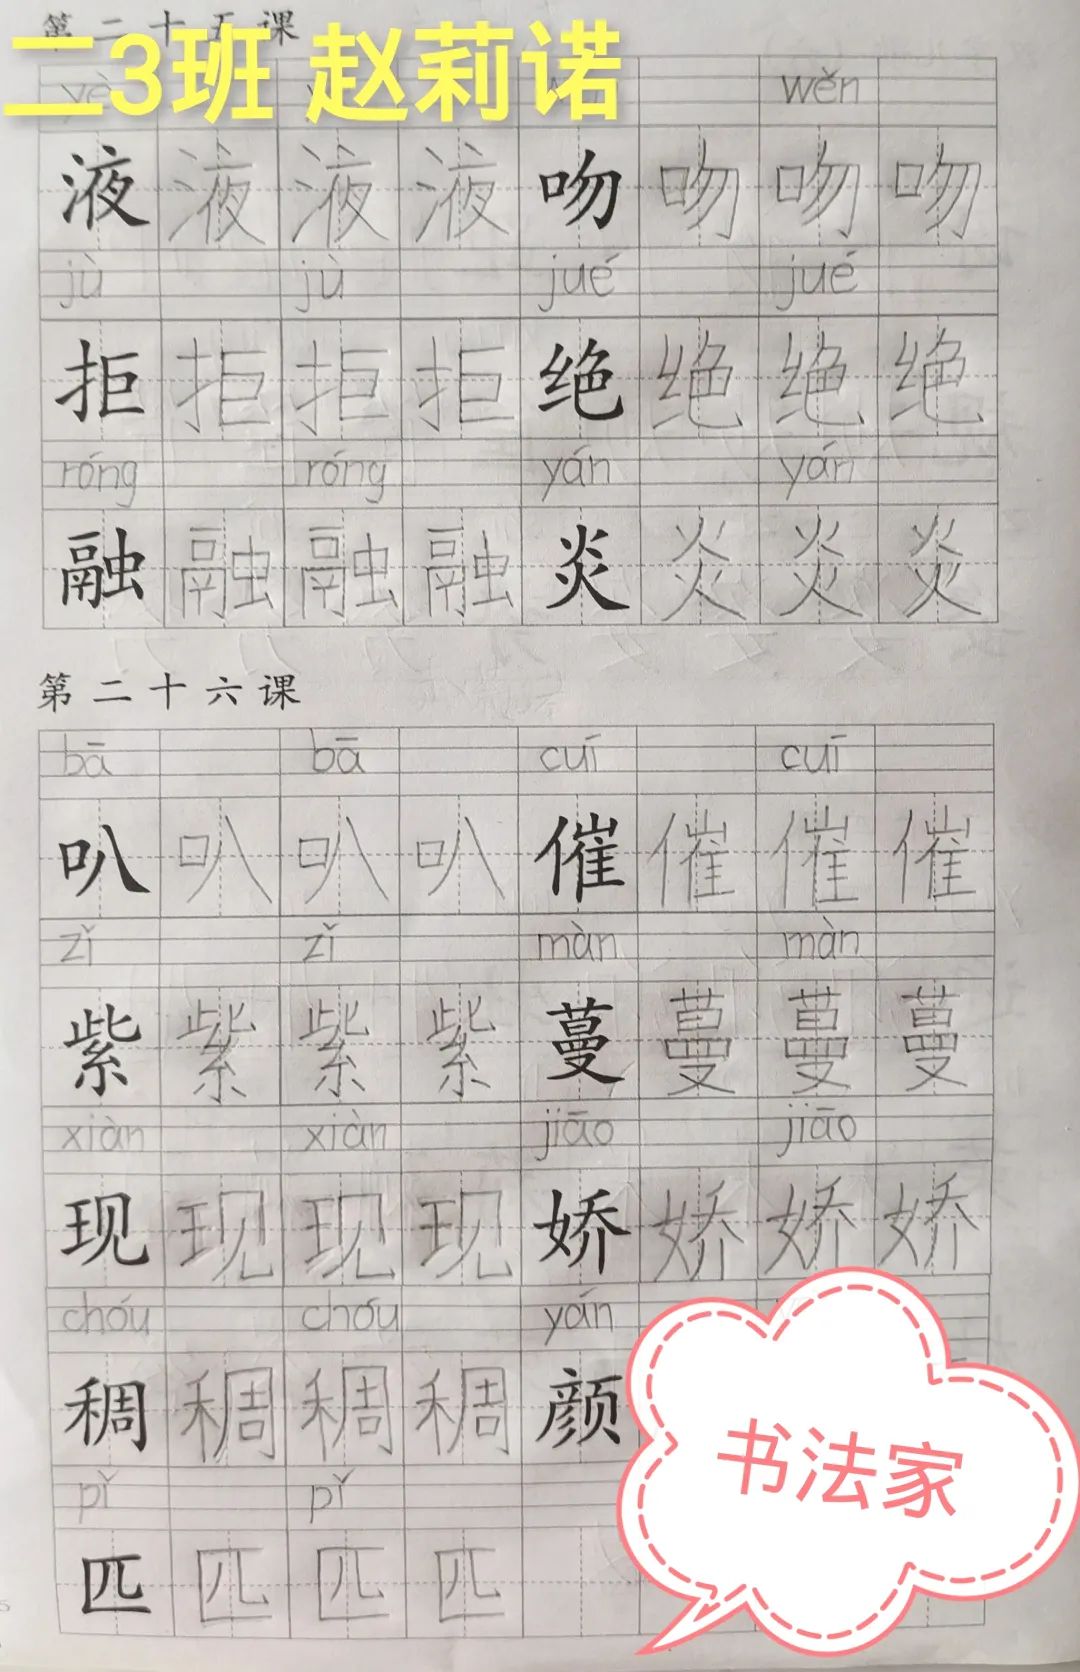 第二十五课
二3班 赵莉诺
yè wěn
液 液 液 液 吻 吻 吻 吻
jù jù jué jué
拒 拒 拒 拒 绝 绝 绝 绝
róng róng yán yán
融 融 融 融 炎 炎 炎 炎
第二十六课
bā bā cuī cuī
叭 叭 叭 叭 催 催 催 催
zǐ zǐ màn màn
紫 紫 紫 紫 蔓 蔓 蔓 蔓
xiàn xiàn jiāo jiāo
现 现 现 现 娇 娇 娇 娇
chóu chóu yán
稠 稠 稠 稠 颜
pǐ pǐ
匹 匹 匹 匹
书法家